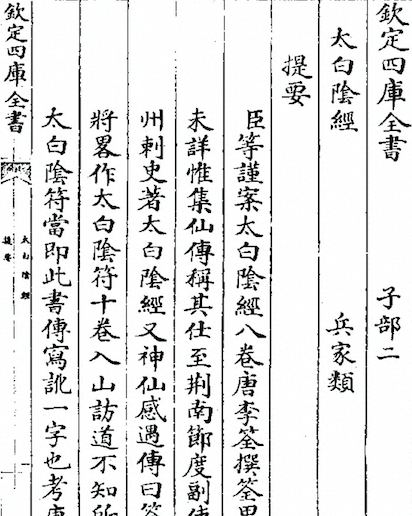 欽定四庫全書 子部二
太白陰經 兵家類
提要
臣等謹案太白陰經八卷唐李筌撰筌
未詳惟集仙傳稱其仕至荆南節度副使
州刺史著太白陰經又神仙感遇傳曰筌
將畧作太白陰符十卷入山訪道不知所
太白陰符當即此書傳寫訛一字也考唐
欽定四庫全書
太白陰經
提要